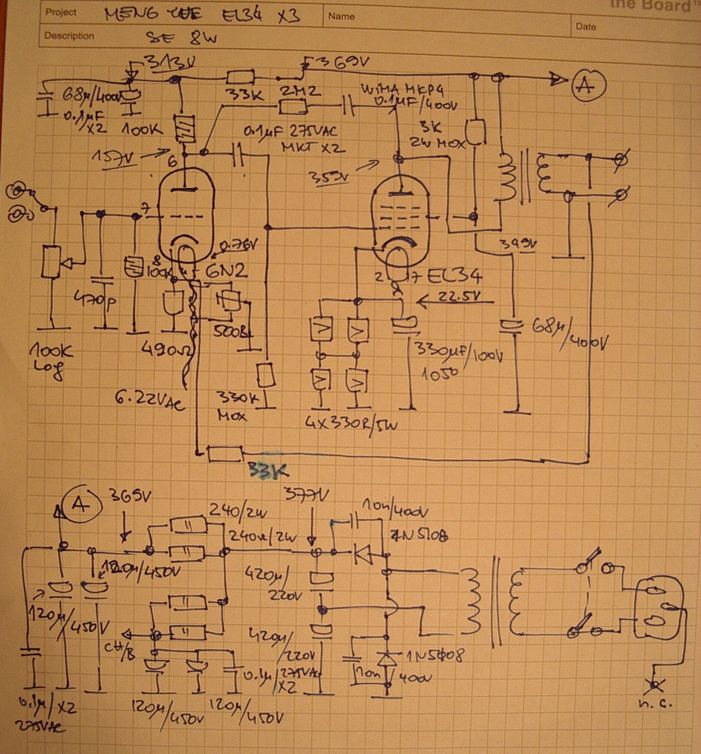 the Board™
Project MENG YUE EL34 X3 Name
Date
Description SE 8W
313V
369V
68µ/400V
0.1µF X2
100K
33K
2M2
WIMA MKP4
0.1µF/400V
0.1µF 275VAC
MKT X2
3K
2W MOX
A
157V
6
359V
7
0.76V
349V
8
100K
6N2
2 17
EL34
22.5V
470p
500R
490Ω
100K
Log
6.22VAC
330K
MOX
330µF/100V
105°
68µ/400V
4X330R/5W
33K
A
369V
240/2W
377V
10n/400V
1N5408
240Ω/2W
120µ/450V
420µ/
220V
120µ/
450V
CH/B
420µ/
220V
1N5408
10n
400V
0.1µ/275VAC
X2
0.1µ/X2
275VAC
120µ/450V
120µ/450V
n.c.